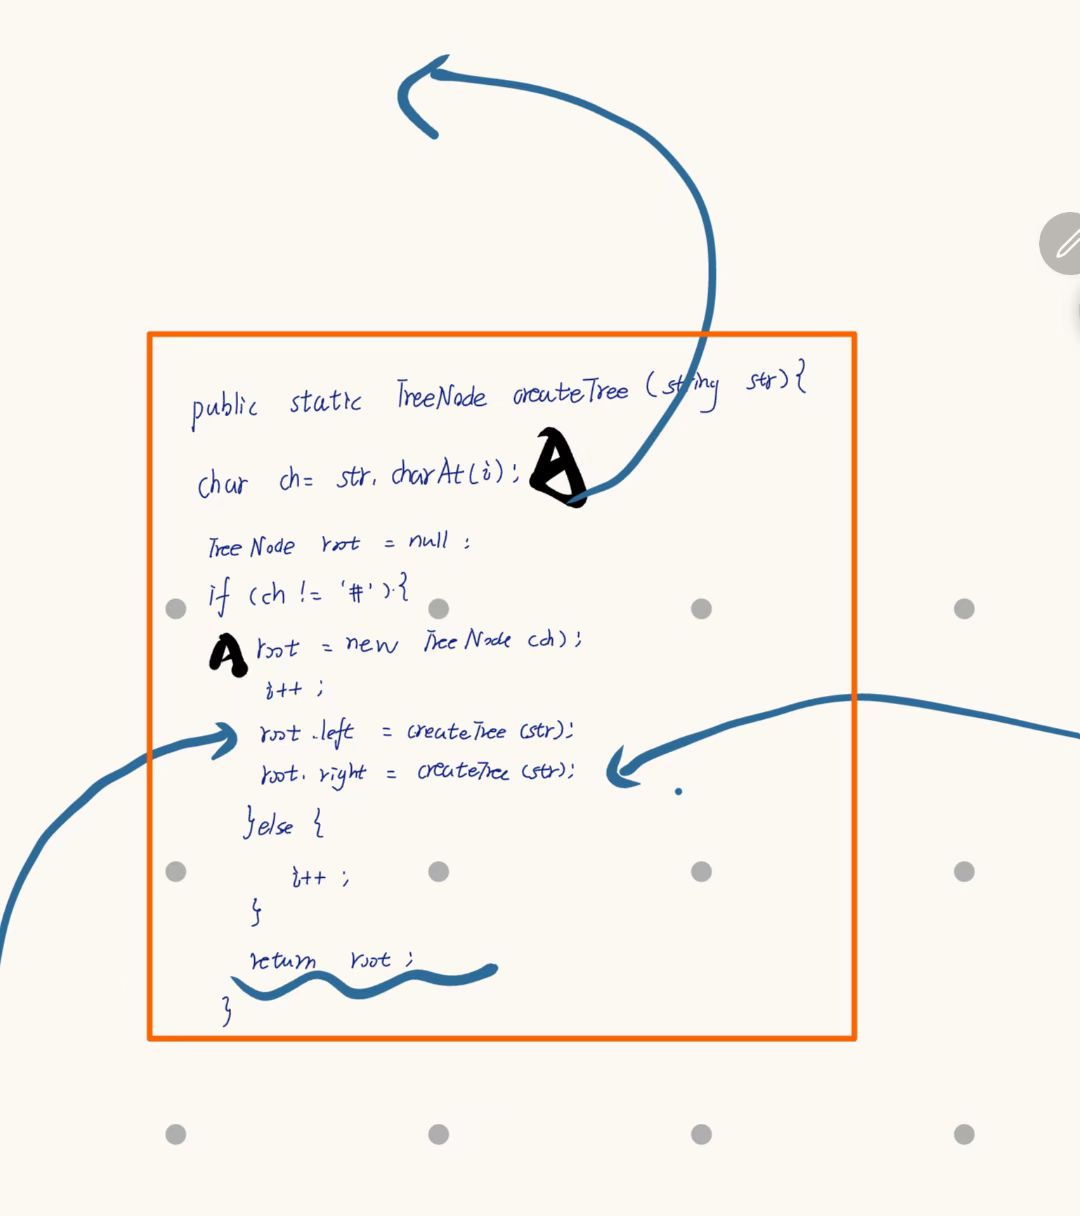 public static TreeNode createTree (string str){
char ch= str. charAt(i); A
TreeNode root = null ;
if (ch != '#').{
A root = new TreeNode (ch);
i++ ;
root .left = createTree (str);
root. right = createTree (str);
}else {
i++ ;
}
return root ;
}